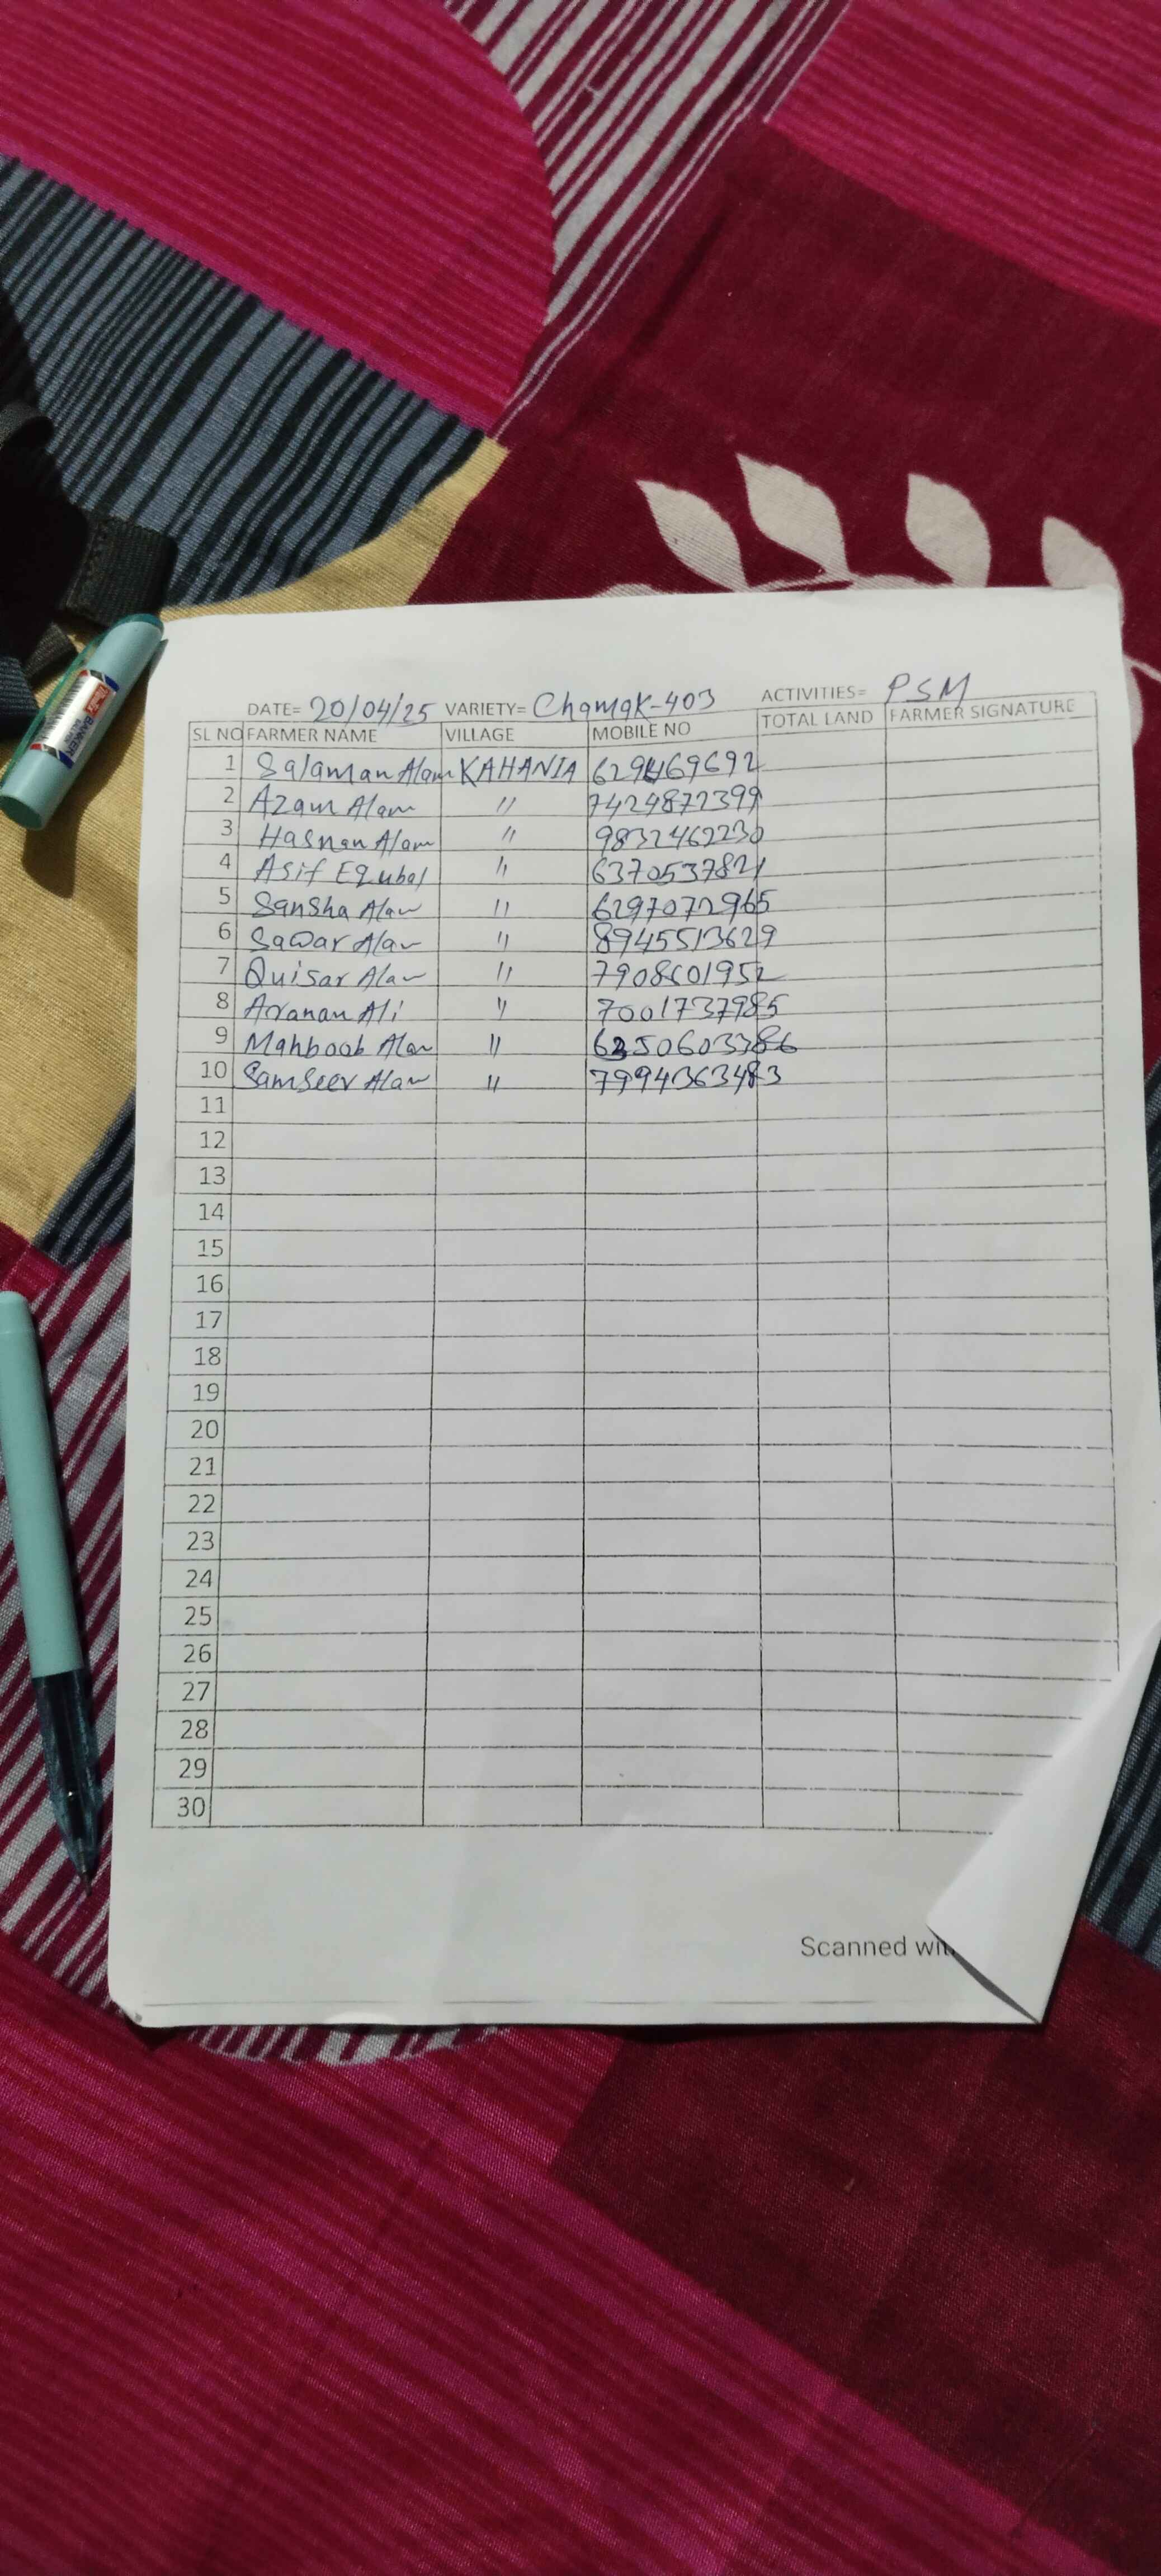 DATE= 20/04/25 VARIETY= Chamak-403 ACTIVITIES= PSM
SL NO FARMER NAME VILLAGE MOBILE NO TOTAL LAND FARMER SIGNATURE
1 Salaman Alam KAHANIA 6294469692
2 Azam Alam " 7424872399
3 Hasnan Alam " 9832462230
4 Asif Equbal " 6370537821
5 Sansha Alam " 6297072965
6 Sawar Alam " 8945513629
7 Quisar Alam " 7908601952
8 Ali " 7001737985
9 Mahboob Alam "
10 Samseer Alam " 7994363483
11
12
13
14
15
16
17
18
19
20
21
22
23
24
25
26
27
28
29
30
Scanned